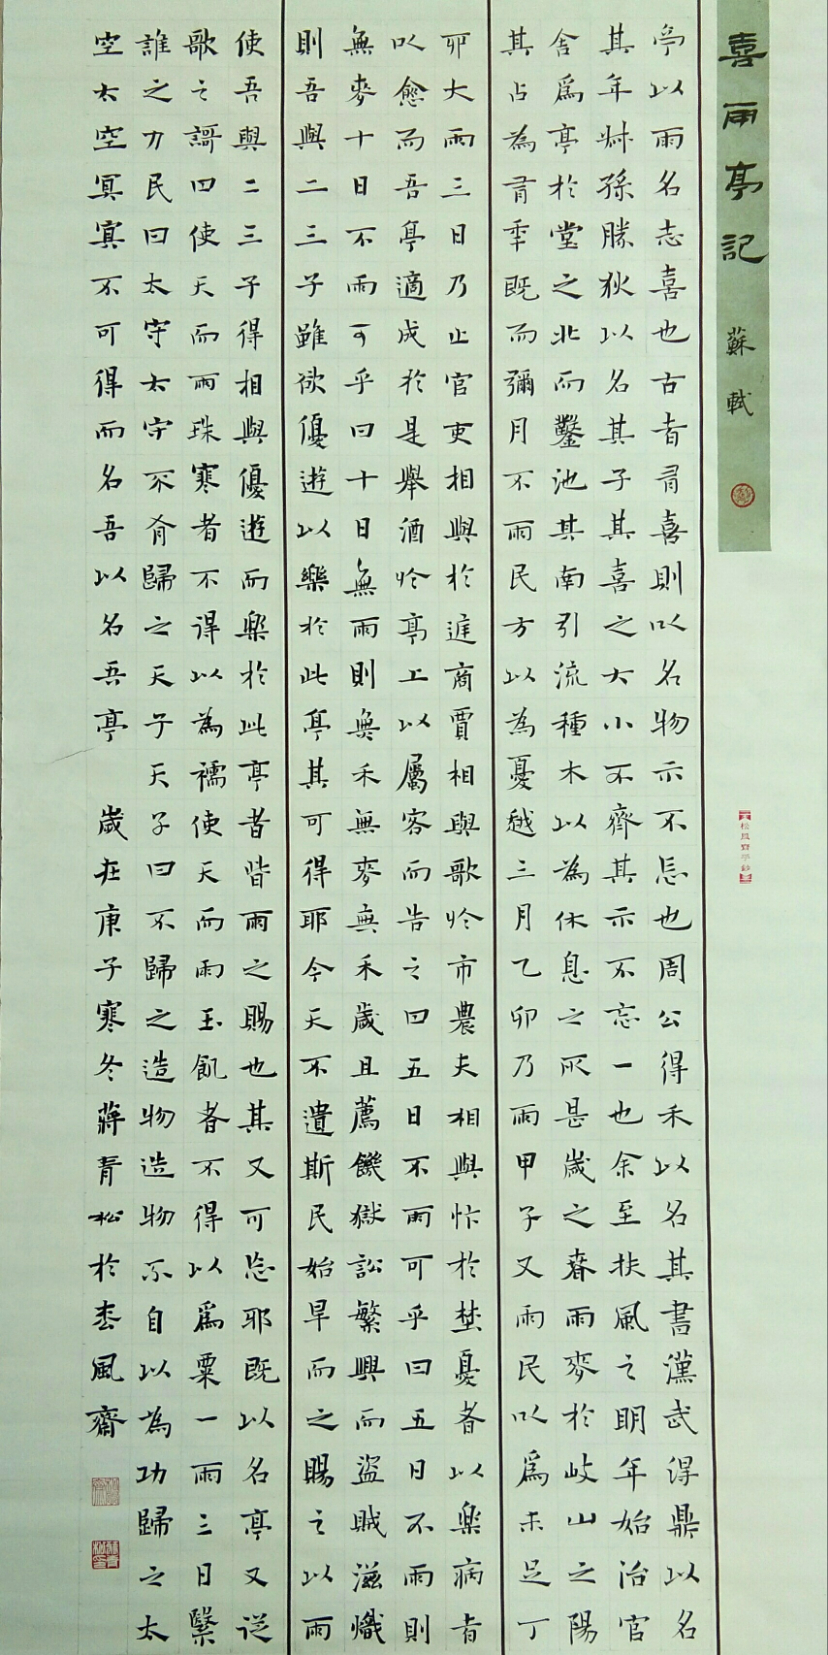 喜雨亭記 蘇軾
亭以雨名志喜也古者有喜則以名物示不忘也周公得禾以名其書漢武得鼎以名
其年叔孫勝狄以名其子其喜之大小不齊其示不忘一也余至扶風之明年始治官
舍爲亭於堂之北而鑿池其南引流種木以為休息之所是歲之春雨麥於岐山之陽
其占為有年既而彌月不雨民方以為憂越三月乙卯乃雨甲子又雨民以爲未足丁
卯大雨三日乃止官吏相與於庭商賈相與歌於市農夫相與忭於埜憂者以樂病者
以愈而吾亭適成於是舉酒於亭上以屬客而告之曰五日不雨可乎曰五日不雨則
無麥十日不雨可乎曰十日無雨則無禾無麥無禾歲且薦饑獄訟繁興而盜賊滋熾
則吾與二三子雖欲優遊以樂於此亭其可得耶今天不遺斯民始旱而之賜之以雨
使吾與二三子得相與優遊而樂於此亭者皆雨之賜也其又可忘耶既以名亭又從
歌之謌曰使天而雨珠寒者不得以為襦使天而雨玉飢者不得以爲粟一雨三日繄
誰之力民曰太守太守不肯歸之天子天子曰不歸之造物造物不自以為功歸之太
空太空冥冥不可得而名吾以名吾亭 歲在庚子寒冬蔣青松於枩風齋